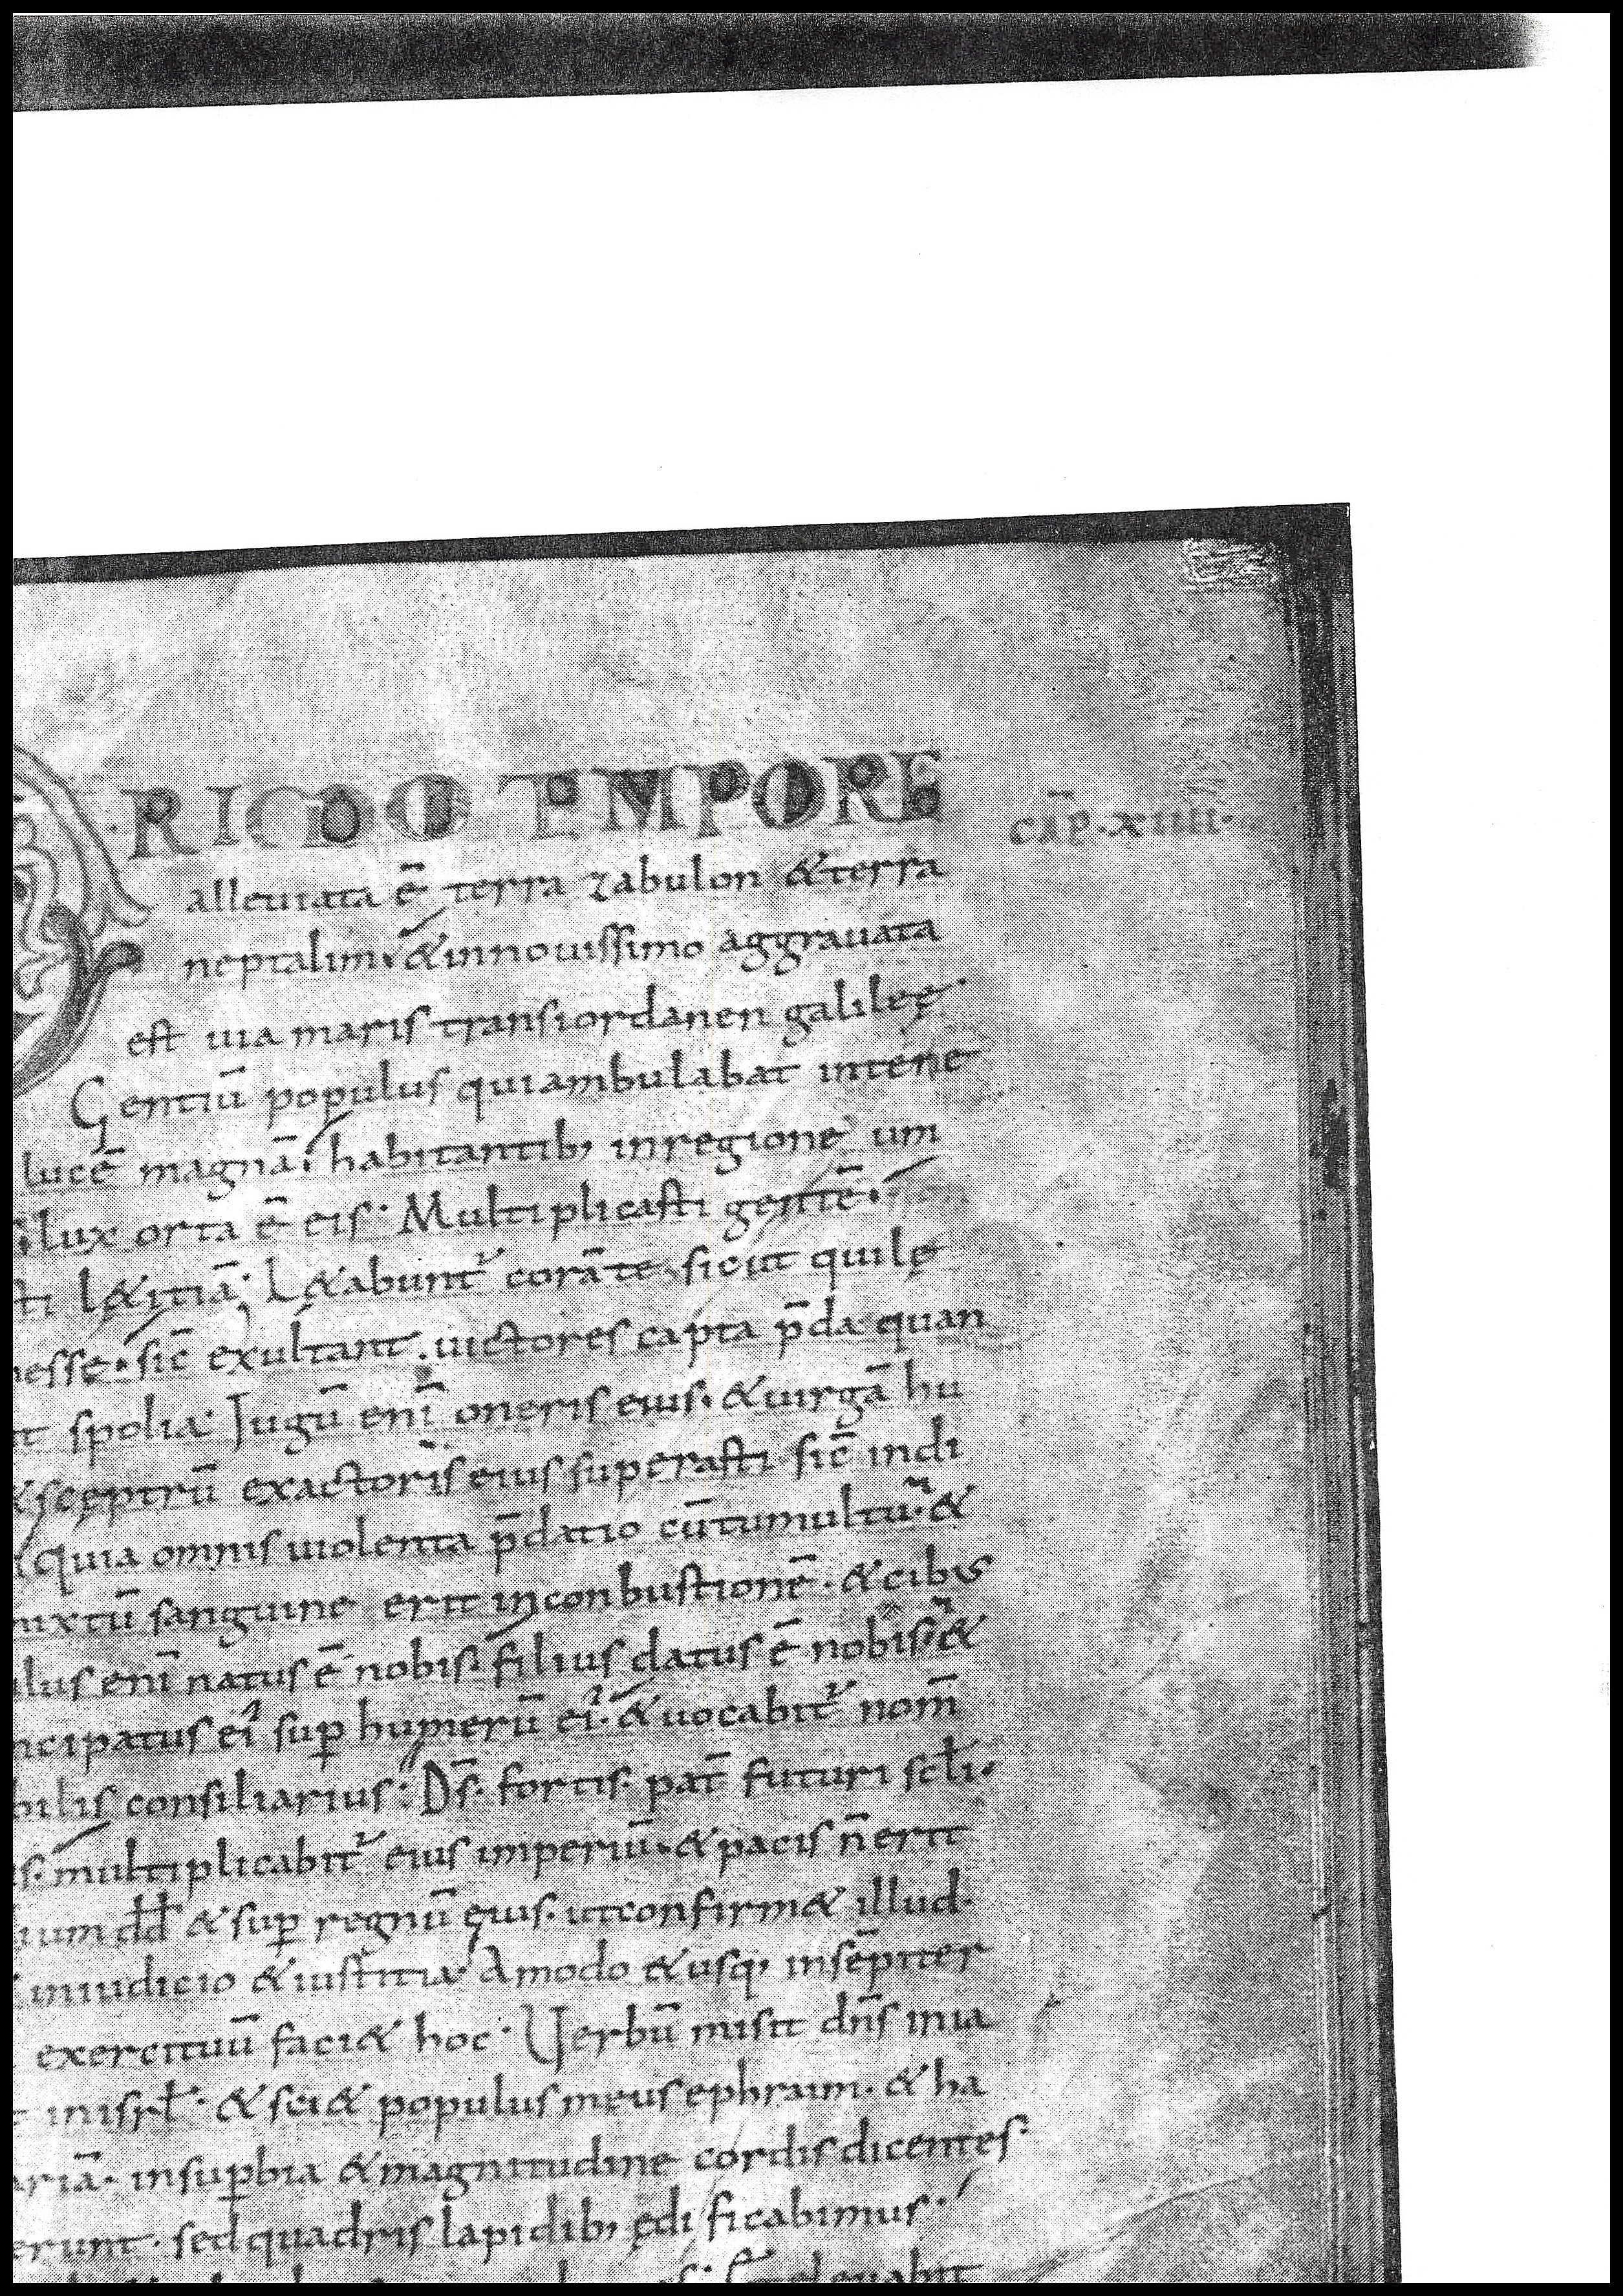 RIOO TEMPORE
CAP̄·XIIII·
alleuiata ē terra zabulon &terra
neptalim· &innouissimo aggrauata
est uia maris transiordanen galileę·
Gentiū populus quiambulabat intene
lucē magnā· habitantib; inregione um
lux orta ē eis· Multiplicasti gentē·
sti l&itiā· L&abunt᷑ corā te, sicut quilę
messe· sic̄ exultant uictores capta p̄da quan
t spolia· Iugū eni̅ oneris eius· &uirgā hu
&scęptrū exactoris eius superasti sic̄ indi
Quia omnis uiolenta p̄datio cū tumultu· &
mixtū sanguine erit inconbustionē· &cibus
ulus eni̅ natus ē nobis· filius datus ē nobis· &
ncipatus ei᷒ suꝑ humerū ei᷒· &uocabit᷑ nom̄
bilis consiliarius· Ds̄· fortis· pat̄ futuri scl̄i·
is· multiplicabit᷑ eius imperiū· &pacis n̄ erit
ium dd̄ &suꝑ regnū ęius· utconfirm& illud·
iniudicio &iustitia· Amodo &usq; insēpiter
exercituū faci& hoc· Uerbū misit dn̄s inia
t inisrl̄· &sci& populus meus ephraim· &ha
ariā· insuꝑbia &magnitudine cordis dicentes·
erunt· sed quadris lapidib; ędificabimus·
eleuabit